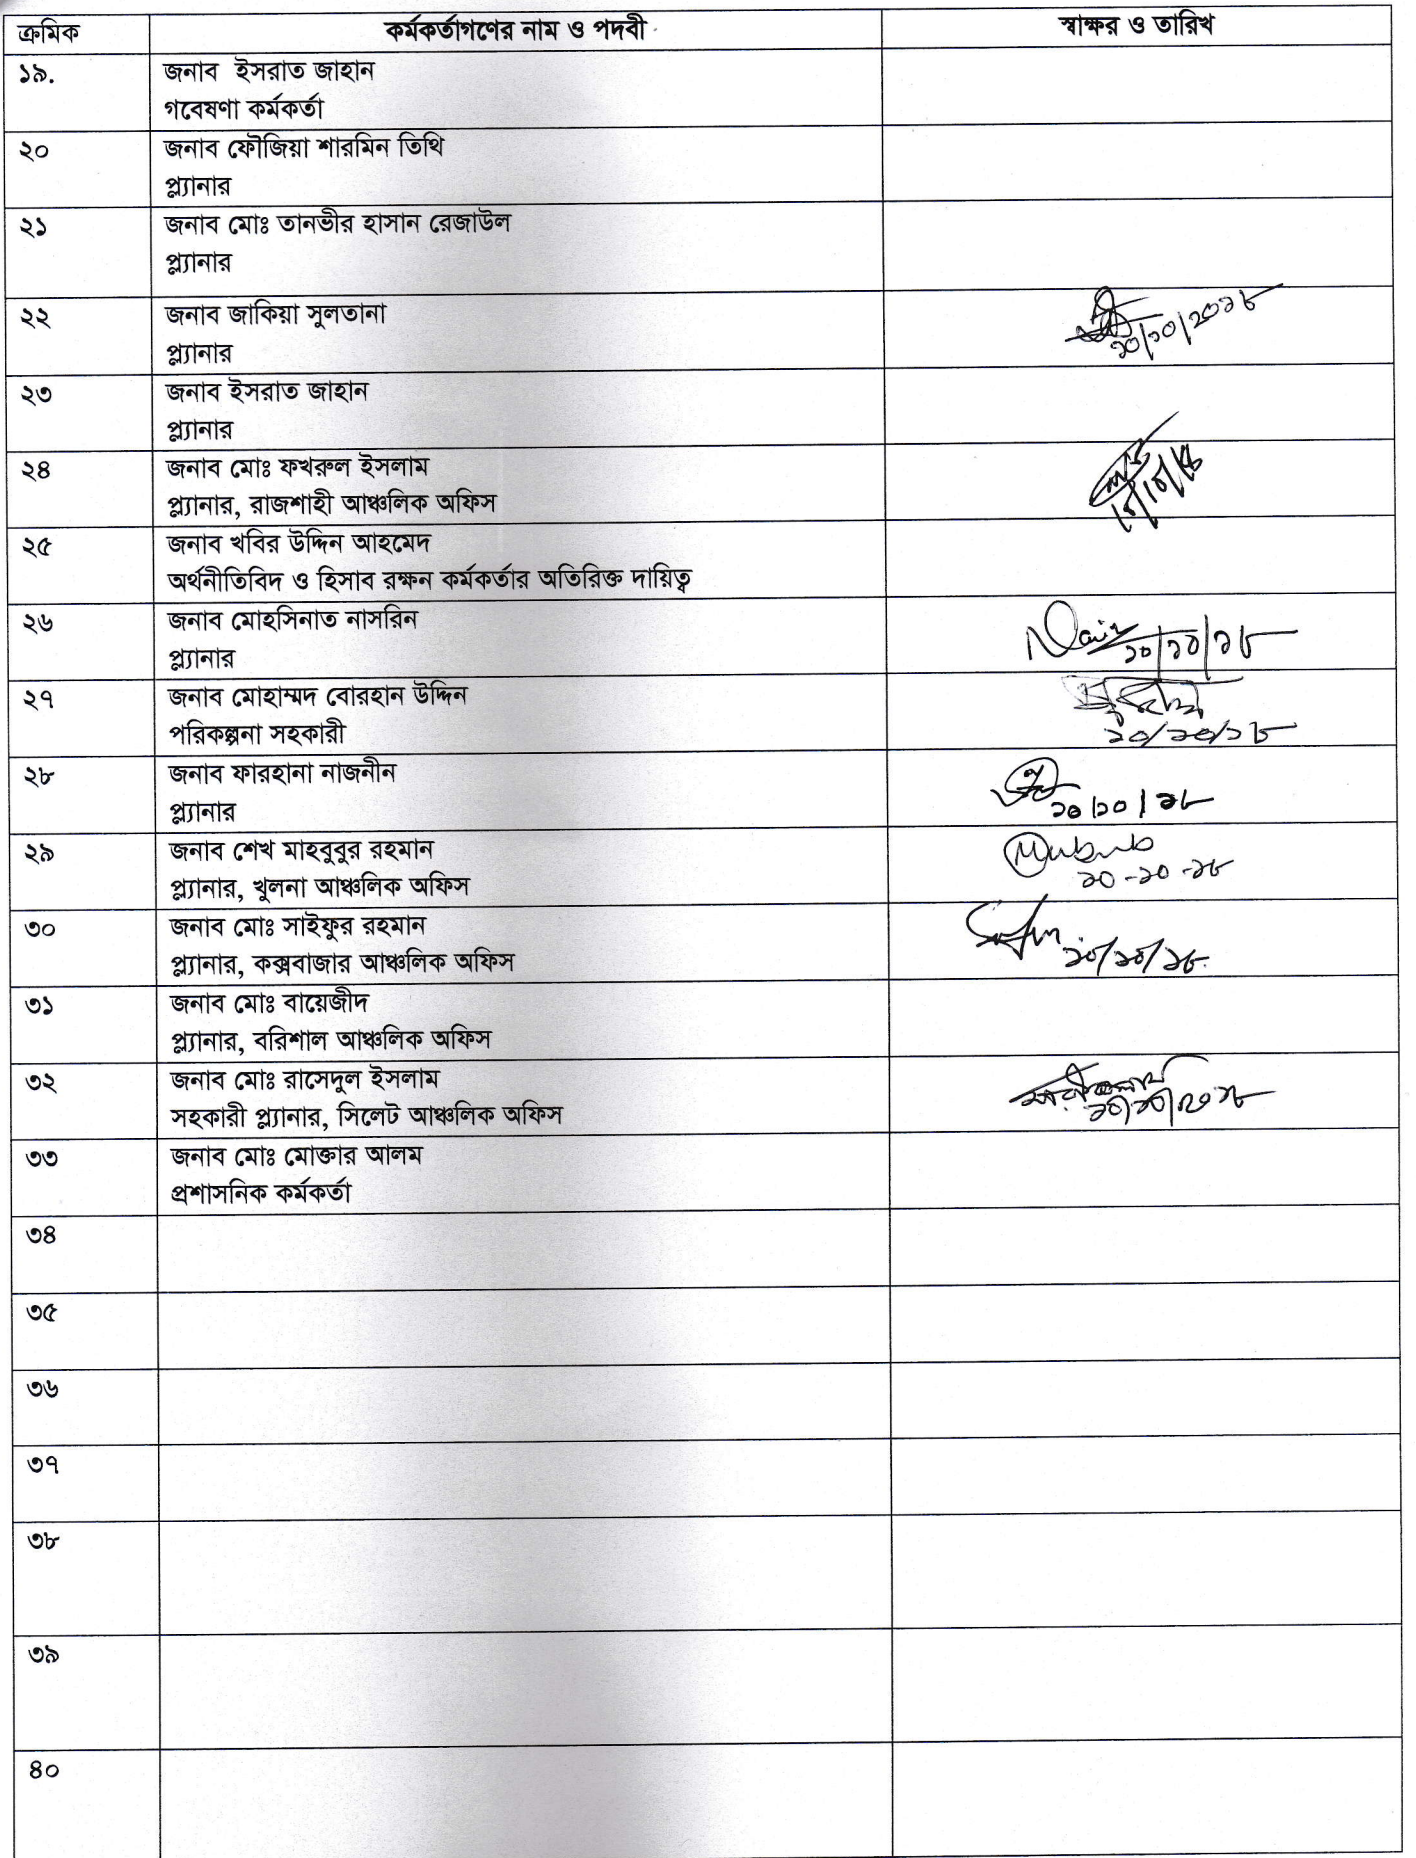 ক্রমিক কর্মকর্তাগণের নাম ও পদবী স্বাক্ষর ও তারিখ
১৯. জনাব ইসরাত জাহান
গবেষণা কর্মকর্তা
২০ জনাব ফৌজিয়া শারমিন তিথি
প্ল্যানার
২১ জনাব মোঃ তানভীর হাসান রেজাউল
প্ল্যানার
২২ জনাব জাকিয়া সুলতানা
প্ল্যানার ১০/১০/২০১৮
২৩ জনাব ইসরাত জাহান
প্ল্যানার
২৪ জনাব মোঃ ফখরুল ইসলাম
প্ল্যানার, রাজশাহী আঞ্চলিক অফিস
২৫ জনাব খবির উদ্দিন আহমেদ
অর্থনীতিবিদ ও হিসাব রক্ষন কর্মকর্তার অতিরিক্ত দায়িত্ব
২৬ জনাব মোহসিনাত নাসরিন
প্ল্যানার ১০/১০/১৮
২৭ জনাব মোহাম্মদ বোরহান উদ্দিন
পরিকল্পনা সহকারী ১০/১০/১৮
২৮ জনাব ফারহানা নাজনীন
প্ল্যানার ১০/১০/১৮
২৯ জনাব শেখ মাহবুবুর রহমান
প্ল্যানার, খুলনা আঞ্চলিক অফিস ১০-১০-১৮
৩০ জনাব মোঃ সাইফুর রহমান
প্ল্যানার, কক্সবাজার আঞ্চলিক অফিস ১০/১০/১৮
৩১ জনাব মোঃ বায়েজীদ
প্ল্যানার, বরিশাল আঞ্চলিক অফিস
৩২ জনাব মোঃ রাসেদুল ইসলাম
সহকারী প্ল্যানার, সিলেট আঞ্চলিক অফিস ১০/১০/২০১৮
৩৩ জনাব মোঃ মোক্তার আলম
প্রশাসনিক কর্মকর্তা
৩৪
৩৫
৩৬
৩৭
৩৮
৩৯
৪০